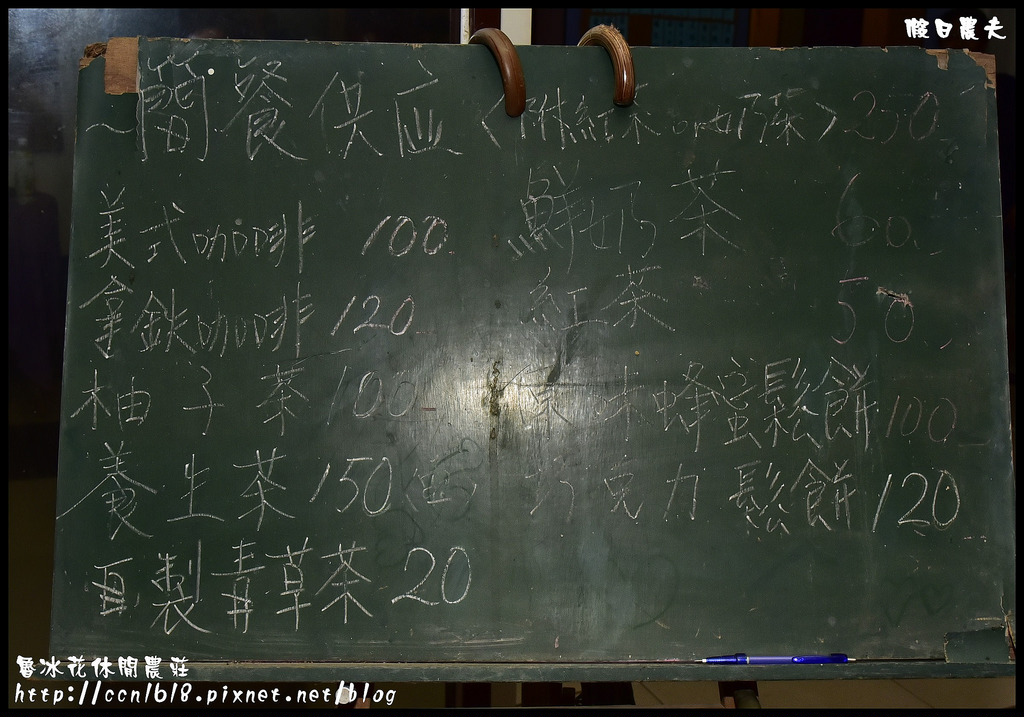 假日農夫
~簡餐供应<附紅茶or奶茶>250
美式咖啡 100
拿鉄咖啡 120
柚子茶 100
養生茶 150
自製青草茶 20
鮮奶茶 60
紅茶 50
原味蜂蜜鬆餅 100
巧克力鬆餅 120
魯冰花休閒農莊
http://ccn1618.pixnet.net/blog